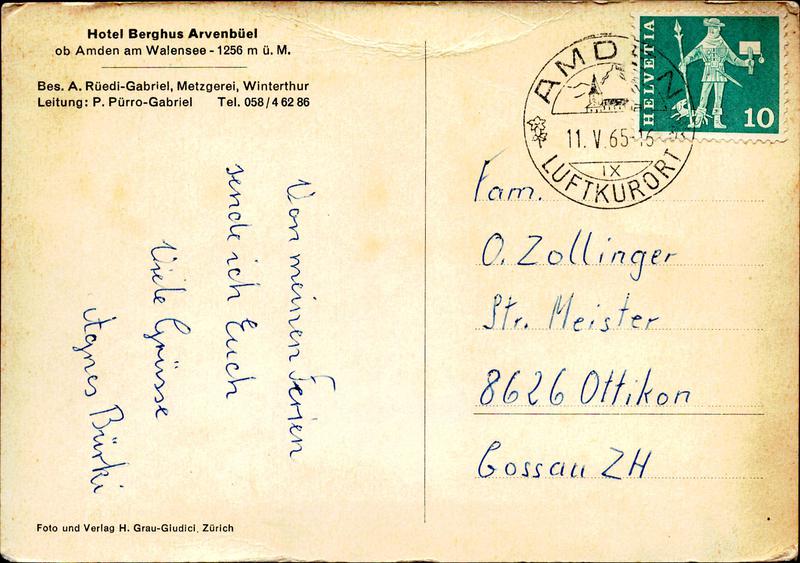 Hotel Berghus Arvenbüel
ob Amden am Walensee - 1256 m ü. M.
Bes. A. Rüedi-Gabriel, Metzgerei, Winterthur
Leitung: P. Pürro-Gabriel Tel. 058/4 62 86
Von meinen Ferien
sende ich Euch
Viele Grüsse
Agnes Bürki
Foto und Verlag H. Grau-Giudici, Zürich
AMDEN
11. V. 65-16
IX
LUFTKURORT
HELVETIA
10
Fam.
O. Zollinger
Str. Meister
8626 Ottikon
Gossau ZH